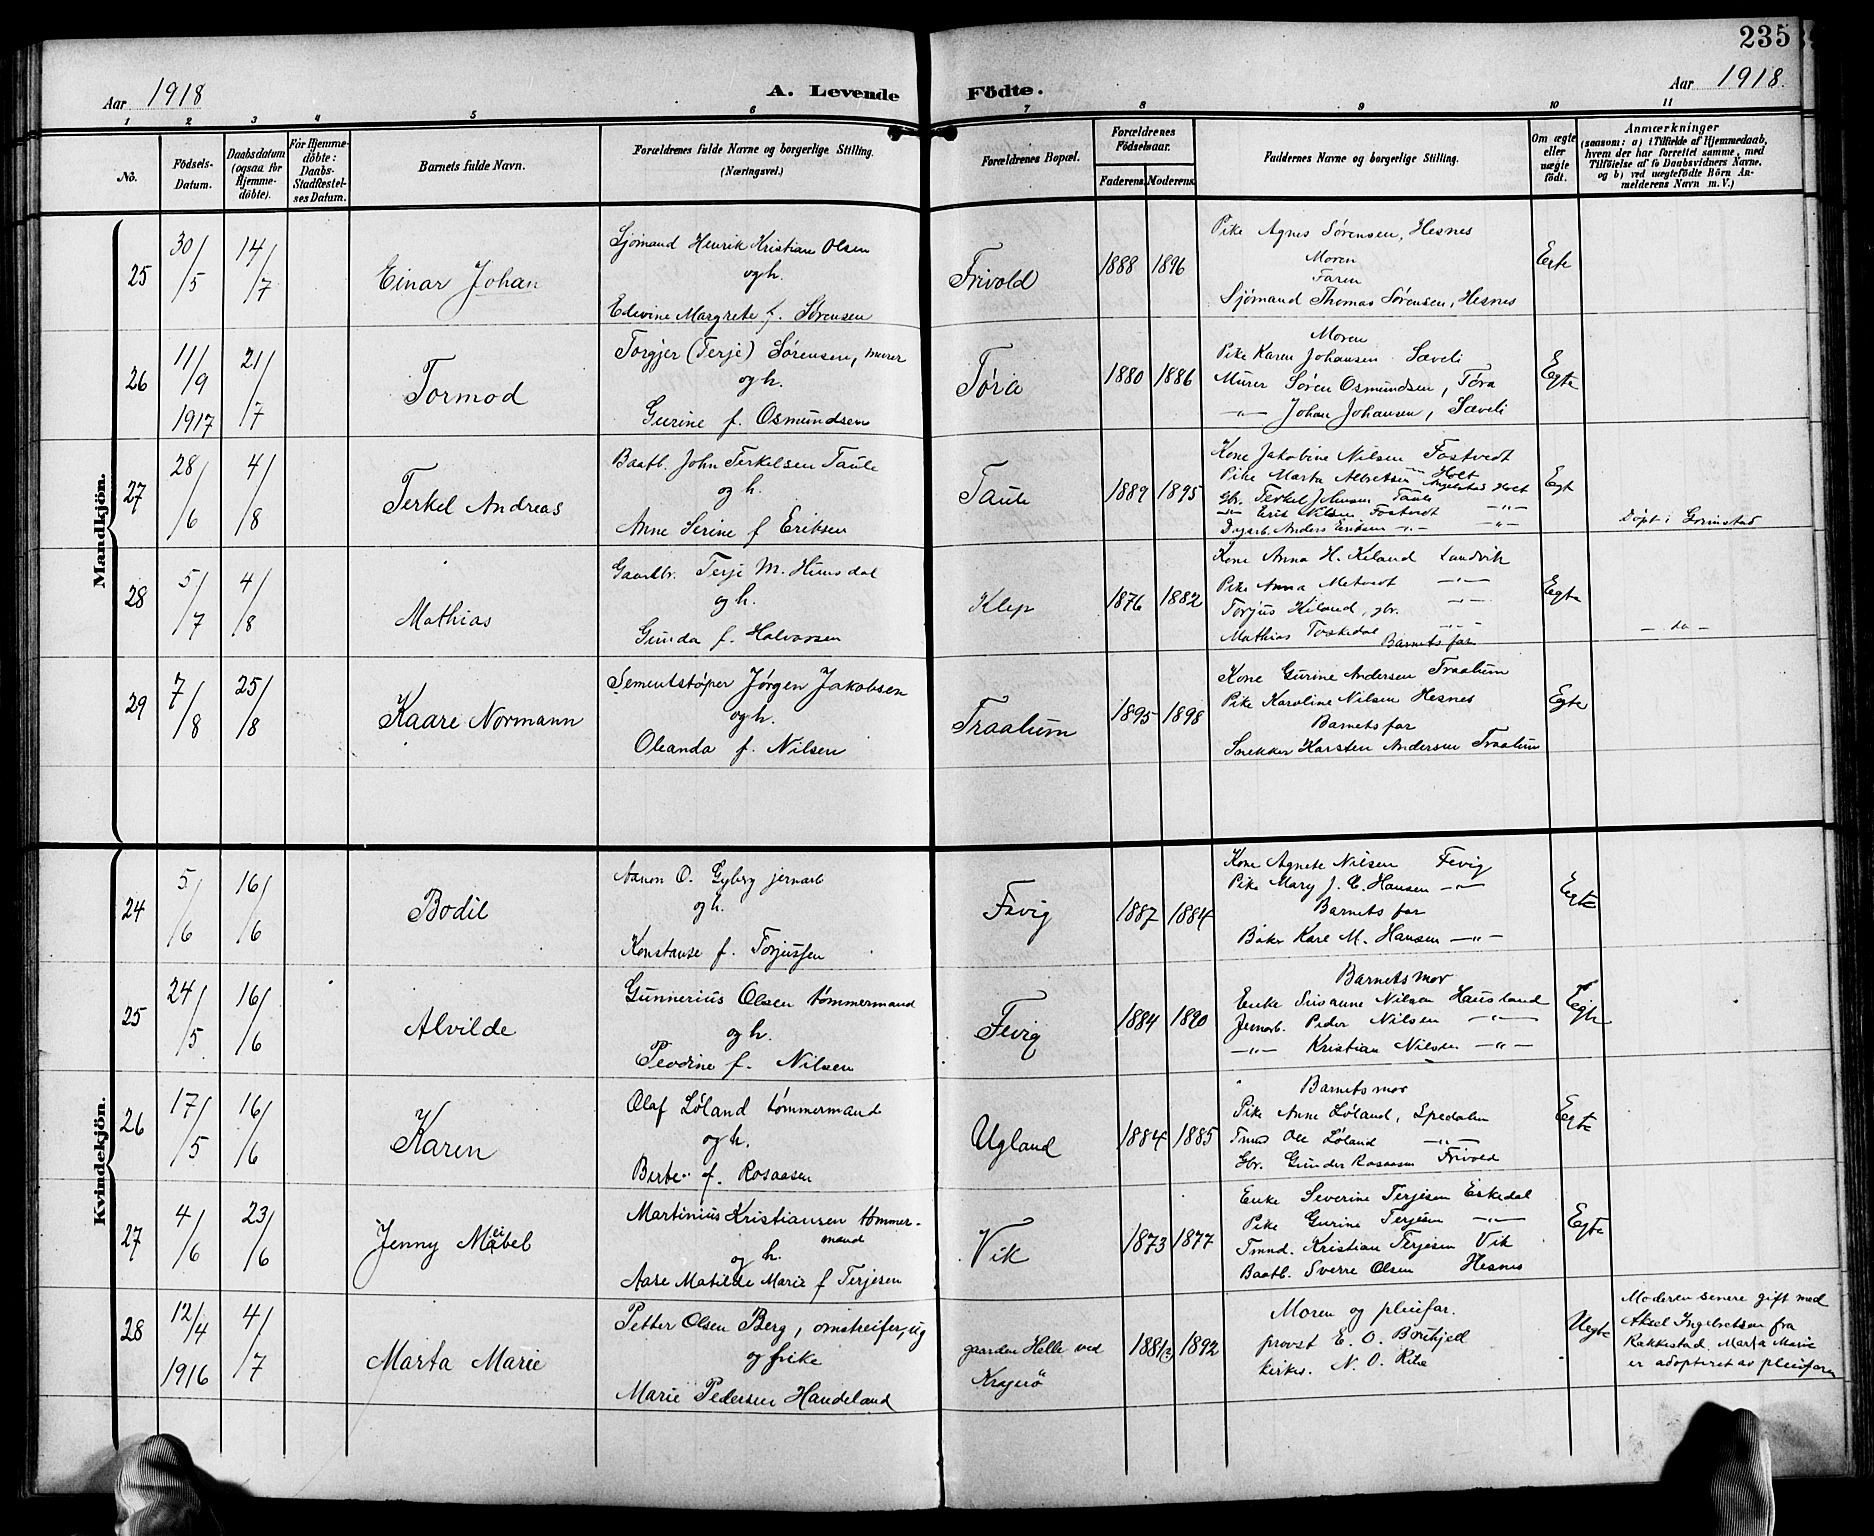 235
Aar 1918
A. Levende Födte.
Aar 1918.
1 2 3 4 5 6 7 8 9 10 11
No.
Födsels-Datum.
Daabsdatum (ogsaa for Hjemme-döbte).
For Hjemme-döbte: Daabs-Stadfæstel-ses Datum.
Barnets fulde Navn.
Forældrenes fulde Navne og borgerlige Stilling. (Næringsvei.)
Forældrenes Bopæl.
Forældrenes Födselsaar.
Faderens. Moderens.
Faddernes Navne og borgerlige Stilling.
Om ægte eller uægte födt.
Anmærkninger
(saasom: a) i Tilfælde af Hjemmedaab, hvem der har forrettet samme, med Tilföielse af to Daabsvidners Navne, og b) ved uægtefödte Börn An-melderens Navn m. V.)
Mandkjön.
25 30/5 14/7 Einar Johan
Sjömand Henrik Kristian Olsen
og h.
Edivine Margrete f. Sørensen
Frivold 1888 1896
Pike Agnes Sørensen, Hesnes
Moren
Faren
Sjömand Thomas Sørensen, Hesnes
Ekte
26 11/9 1917 21/7 Tormod
Torgjer (Terje) Sørensen, murer
og h.
Gurine f. Osmundsen
Töra 1880 1886
Moren
Pike Karen Johansen Sæveli
Murer Søren Osmundsen, Töra
—"— Johan Johansen, Sæveli
Egte
27 28/6 4/8 Terkel Andreas
Baatb. John Terkelsen Taule
og h.
Anne Serine f Eriksen
Taule 1889 1895
Kone Jakobine Nilsen Fostvedt
Pike Marta Albretsen Angelstad Holt
Gbr. Terkel Johnsen Taule
—"— Erik Nilsen Fostvedt —"—
Dagarb. Anders Eriksen —"— —"—
Egt
Döpt i Grimstad
28 5/7 4/8 Mathias
Gaardbr. Terje M. Himsdal
og h.
Gunda f. Halvorsen
Klep 1876 1882
Kone Anna H. Kiland Landvik
Pike Anna Metvedt —"—
Torjus Kiland, gbr. —"—
Mathias Toskedal —"—
Barnets far
Egte
— do —
29 7/8 25/8 Kaare Normann
Sementstøper Jørgen Jakobsen
og h.
Oleanda f. Nilsen
Traalum 1895 1898
Kone Gurine Andersen Traalum
Pike Karoline Nilsen Hesnes
Barnets far
Snekker Karsten Andersen Traalum
Egte
Kvindekjön.
24 5/6 16/6 Bodil
Aanon O. Gyberg jernarb
og h.
Konstanse f. Torjussen
Fevig 1887 1884
Kone Agnete Nilsen Fevig
Pike Mary J. C. Hansen —"—
Barnets far
Baker Karl M. Hansen —"—
Egte
25 24/5 16/6 Alvilde
Gunnerius Olsen tømmermand
og h.
Peodine f. Nilsen
Fevig 1884 1890
Barnets mor
Enke Susanne Nilsen Hausland
Jernarb. Peder Nilsen —"—
—"— Kristian Nilsen —"—
Egte
26 17/5 16/6 Karen
Olaf Løland tømmermand
og h.
Birte f. Rosaasen
Ugland 1884 1885
Barnets mor
Pike Anne Løland, Spedalen
Tmd Ole Løland —"—
Gbr. Gunder Rosaasen Frivold
Egte
27 4/6 23/6 Jenny Maibel
Martinius Kristiansen tømmer-
mand
og h.
Aase Matilde Marie f Terjesen
Vik 1873 1877
Enke Severine Terjesen Eskedal
Pike Gurine Terjesen —"—
Tmnd. Kristian Terjesen Vik
Baatb. Sverre Olsen Hesnes
Egte
28 12/4 1916 4/7 Marta Marie
Petter Olsen Berg, omstreifer, ug
og pike
Marie Pedersen Handeland
gaarden Helle ved
Kragerö
1881(?) 1892
Moren og pleiefar.
provst E. O. Bothjell
kirkes. N. O. Ribe
Uegte
Moderen senere gift med
Aksel Ingebretsen fra
Rakkestad. Marta Marie
er adopteret av pleiefaren